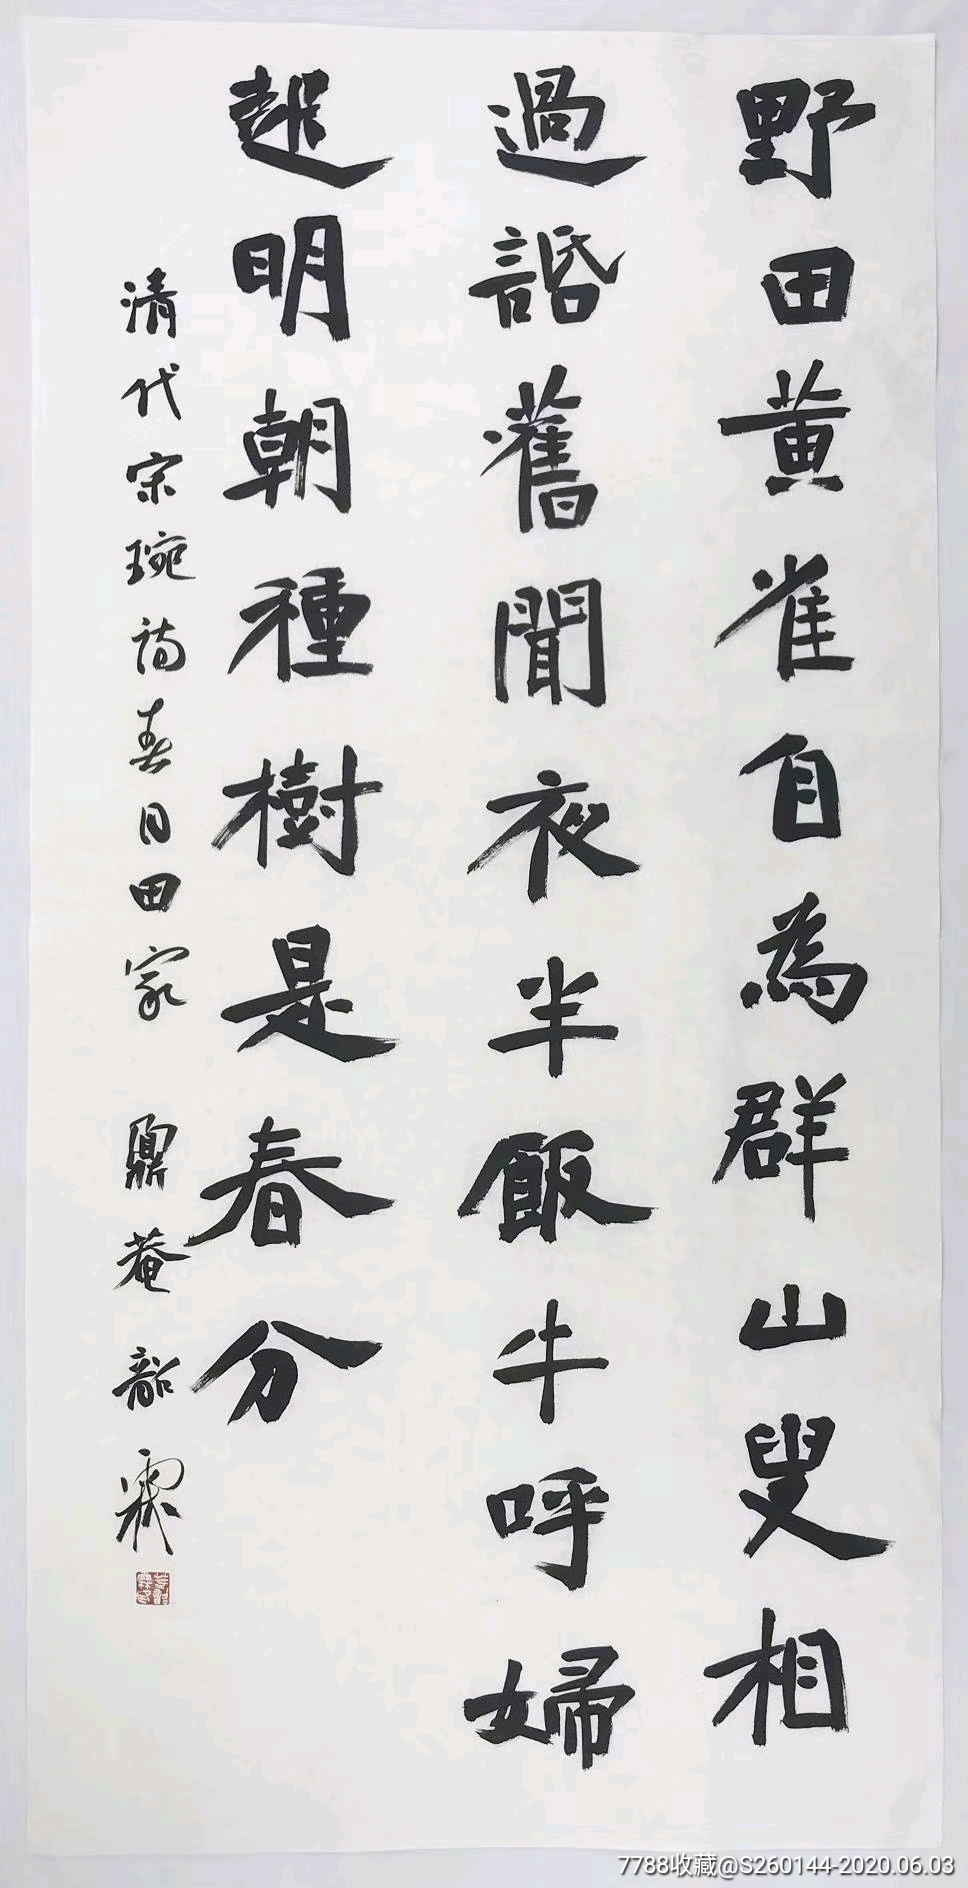 野田黄雀自為群山叟相
過話舊聞夜半飯牛呼婦
起明朝種樹是春分
清代宗琬詩春日田家 鼎菴韶霖
7788收藏@S260144-2020.06.03